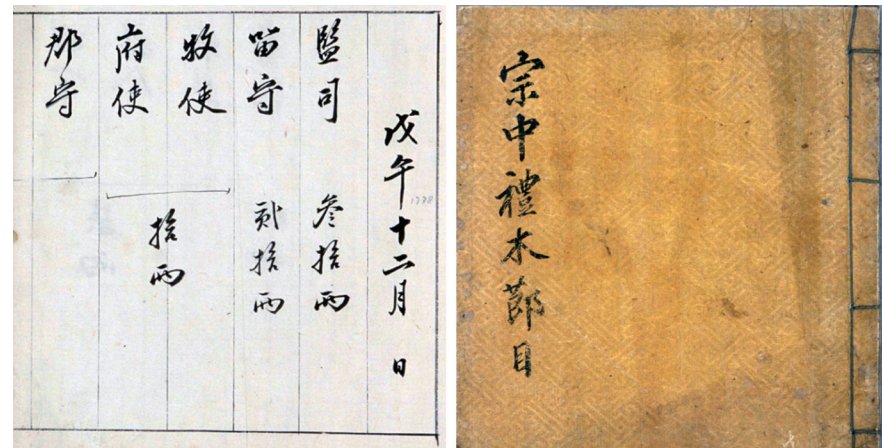 宗中禮木節目
戊午十二月 日
1738
監司 叄拾兩
留守 貳拾兩
牧使
府使
拾兩
郡守